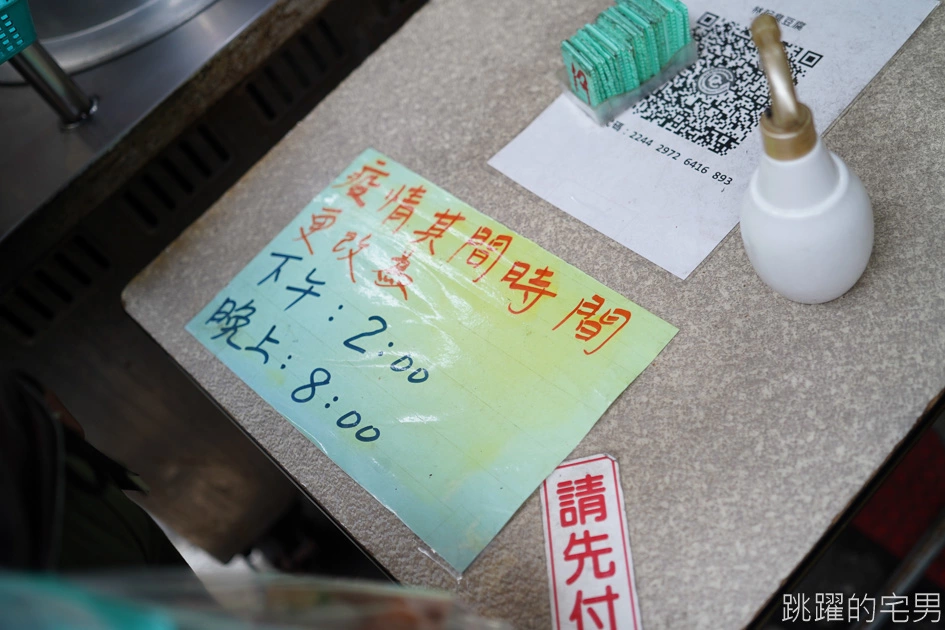 林記臭豆腐
碼：2244 2972 6416 893
疫情其間時間
更改為
下午：2:00
晚上：8:00
請先付
跳躍的宅男